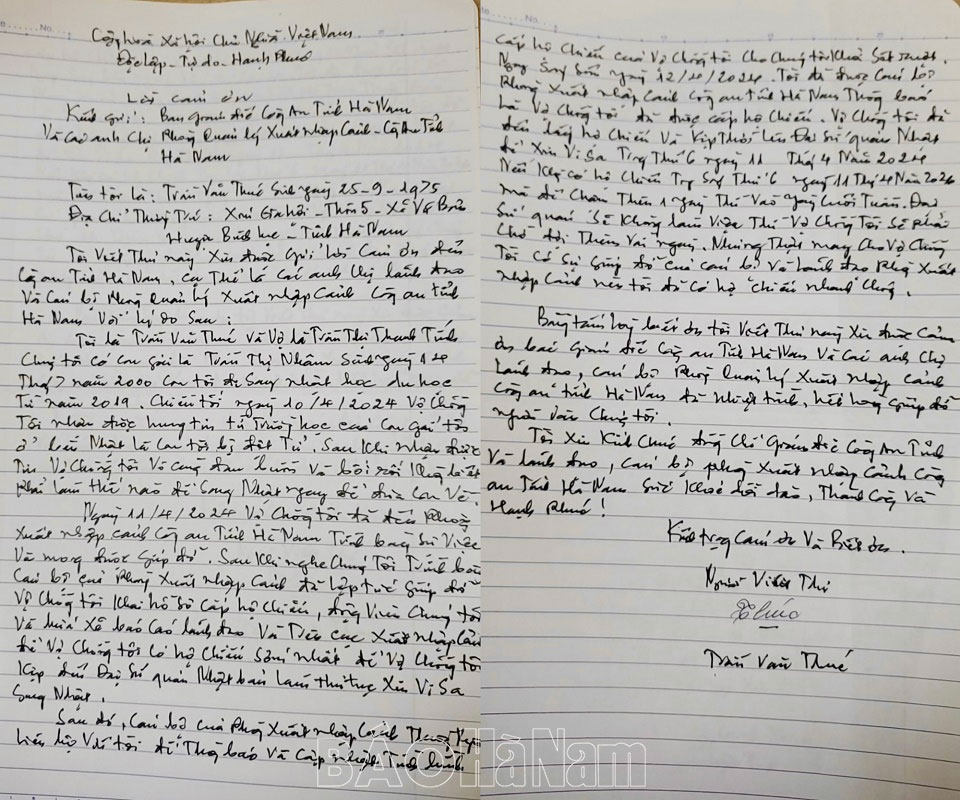 Cộng hoà xã hội Chủ Nghĩa Việt Nam
Độc lập - Tự do - Hạnh Phúc
Lời cảm ơn
Kính gửi: Ban giám đốc Công An Tỉnh Hà Nam
Và các anh chị Phòng Quản lý Xuất Nhập Cảnh - Công An Tỉnh
Hà Nam
Tên tôi là: Trần Văn Thuế Sinh ngày 25-9-1975
Địa Chỉ Thường Trú: Xóm Gia hội - Thôn 5 - Xã Vũ Bản
Huyện Bình lục - Tỉnh Hà Nam
Tôi Viết Thư này Xin được gửi lời Cảm ơn đến
Công an Tỉnh Hà Nam, cụ thể là các anh chị lãnh đạo
Và Cán bộ Phòng Quản lý Xuất nhập Cảnh Công an tỉnh
Hà Nam Với lý do Sau:
Tôi là Trần Văn Thuế Và Vợ là Trần Thị Thanh Tính
Chúng tôi có Con gái là Trần Thị Nhâm Sinh ngày 14
Thág 7 năm 2000 Con tôi đi Sang nhật học du học
Từ năm 2019. Chiều tối ngày 10/4/2024 Vợ Chồng
Tôi nhận được hung tin từ trường học của Con gái tôi
ở bên Nhật là Con tôi bị đột Tử. Sau Khi nhận được
Tin Vợ Chồng tôi Vô cùng đau buồn Và bối rối Không biết
Phải làm thế nào để Sang Nhật ngay để đưa Con Về
Ngày 11/4/2024 Vợ Chồng tôi đã đến Phòng
Xuất nhập cảnh Công an Tỉnh Hà Nam Trình bày Sự Việc
Và mong được giúp đỡ. Sau Khi nghe Chúng Tôi Trình bày
Cán bộ của Phòng Xuất nhập Cảnh đã lập tức giúp đỡ
Vợ Chồng tôi Khai hồ sơ Cấp hộ Chiếu, động Viên Chúng tôi
Và báo Cáo lãnh đạo Và Xuất nhập Cảnh
để Vợ Chồng tôi Có hộ Chiếu Sớm nhất để Vợ Chồng tôi
Kịp đến Đại Sứ quán Nhật bản làm thủ tục Xin Vi Sa
Sang Nhật.
Sau đó, Cán bộ của Phòng Xuất nhập Cảnh Thường
liên hệ Với tôi để Thông báo Và Cập nhật Tình hình
cấp hộ Chiếu của Vợ Chồng tôi Cho Chúng tôi
Ngay Sáng Sớm ngày 12/4/2024. Tôi đã được Cán bộ
Phòng Xuất nhập Cảnh Công an tỉnh Hà Nam Thông báo
là Vợ Chồng tôi đã được cấp hộ Chiếu. Vợ Chồng tôi đã
đến lấy hộ Chiếu Và Kịp Thời lên Đại Sứ quán Nhật
để Xin Vi Sa Trong Thứ 6 ngày 11 Thág 4 Năm 2024
Nếu Không có hộ Chiếu Trong Sáng Thứ 6 ngày 11 Thág 4 Năm 2024
mà để Chậm Thêm 1 ngày Thì Vào ngày Cuối Tuần. Đại
Sứ quán Sẽ Không làm Việc Thì Vợ Chồng Tôi Sẽ Phải
Chờ đợi Thêm Vài ngày. Nhưng Thật may Cho Vợ Chồng
Tôi Có Sự giúp đỡ của cán bộ Và lãnh đạo Phòng Xuất
nhập Cảnh nên tôi đã có hộ Chiếu nhanh Chóng.
Bằng tấm lòng biết ơn tôi Viết Thư này Xin được Cảm
ơn ban Giám đốc Công an Tỉnh Hà Nam Và các anh Chị
lãnh đạo, Cán bộ Phòng Quản lý Xuất nhập cảnh
Công an tỉnh Hà Nam đã nhiệt tình, hết lòng giúp đỡ
người dân Chúng tôi.
Tôi Xin Kính Chúc đồng Chí Giám đốc Công An Tỉnh
Và lãnh đạo, Cán bộ Phòng Xuất nhập Cảnh Công
an Tỉnh Hà Nam Sức Khoẻ dồi dào, Thành Công Và
Hạnh Phúc!
Kính trọng Cảm ơn Và Biết ơn.
Người Viết Thư
Trần Văn Thuế
BÁO Hà Nam